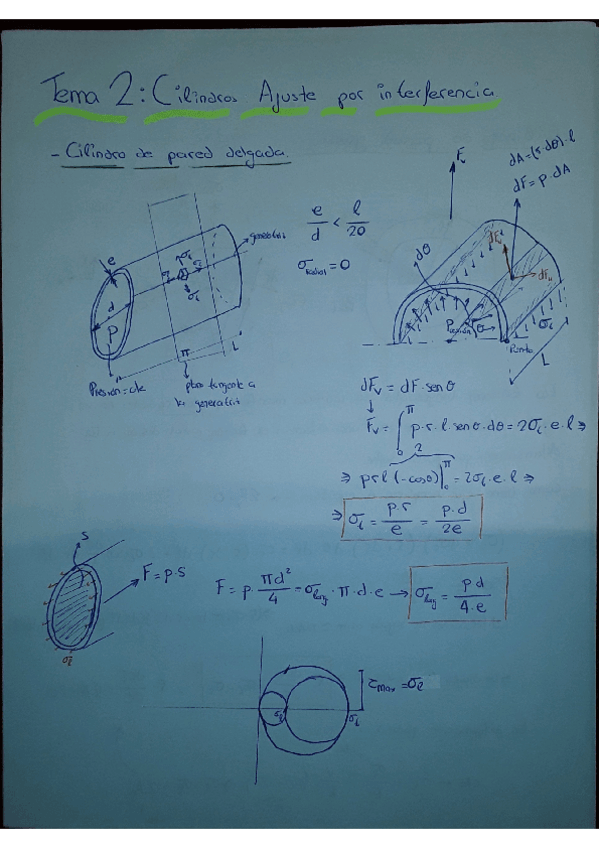 Tema 2: Cilindros Ajuste por interferencia
- Cilindro de pared delgada.
e/d < 1/20
σradial = 0
generatriz
e
d
P
σt
σl
L
π
Presión = cte
plano tangente a
la generatriz
Fv
dA = (r·dθ)·l
dF = p·dA
dθ
dFv
dFH
θ
σt
L
dFv = dF·senθ
↓
Fv = ∫₀^π p·r·l·senθ·dθ = 2σt·e·l ⇒
2
⇒ prl (-cosθ)|₀^π = 2σt·e·l ⇒
⇒ σt = p·r/e = p·d/2e
S
F = p·S
σl
F = p·πd²/4 = σlong·π·d·e → σlong = pd/4·e
σl
σt
τmax = σl